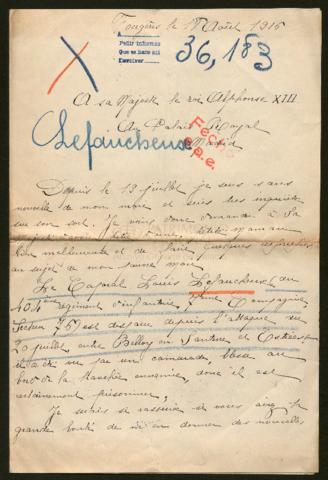 Fougères le 18 Août 1916
Pedir informes
Que se haga allí
Devolver
36,183
A sa Majesté le roi Alphonse XIII
Au Palais Royal
Madrid
Lefaucheux
Fecho
Depuis le 13 juillet je suis sans
nouvelle de mon mari et suis très inquiète
sur son sort. Je viens donc demander à Sa
petite maman
bien malheureuse et de faire quelques
au sujet de mon pauvre mari
Le Caporal Louis Lefaucheux du
404e régiment d'infanterie, Compagnie,
Secteur est disparu depuis l'attaque du
20 juillet entre Belloy en Santerre et Estrées
et a été vu par un camarade blessé au
bord de la tranchée ennemie, donc il est
certainement prisonnier,
Je serais si rassurée si vous aviez la
grande bonté de m'en donner des nouvelles